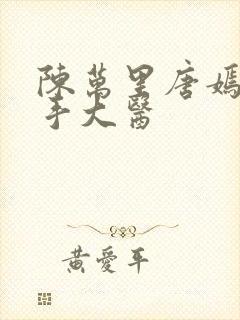 陳萬里唐嫣
手大醫
黃愛平